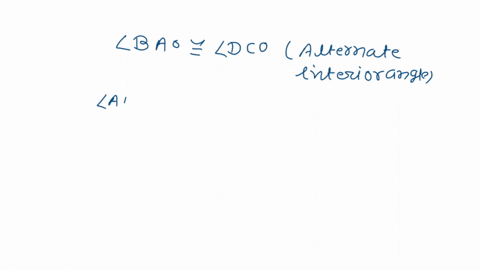 ∠BAO ≅ ∠DCO (Alternate
interiorangle)
∠A